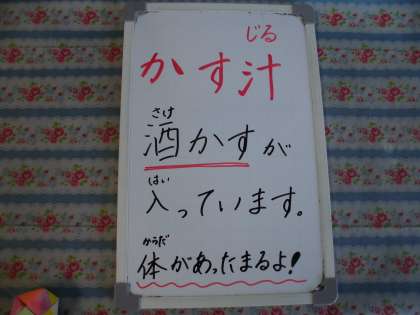 じる
かす汁
さけ
酒かすが
はい
入っています。
からだ
体があったまるよ!